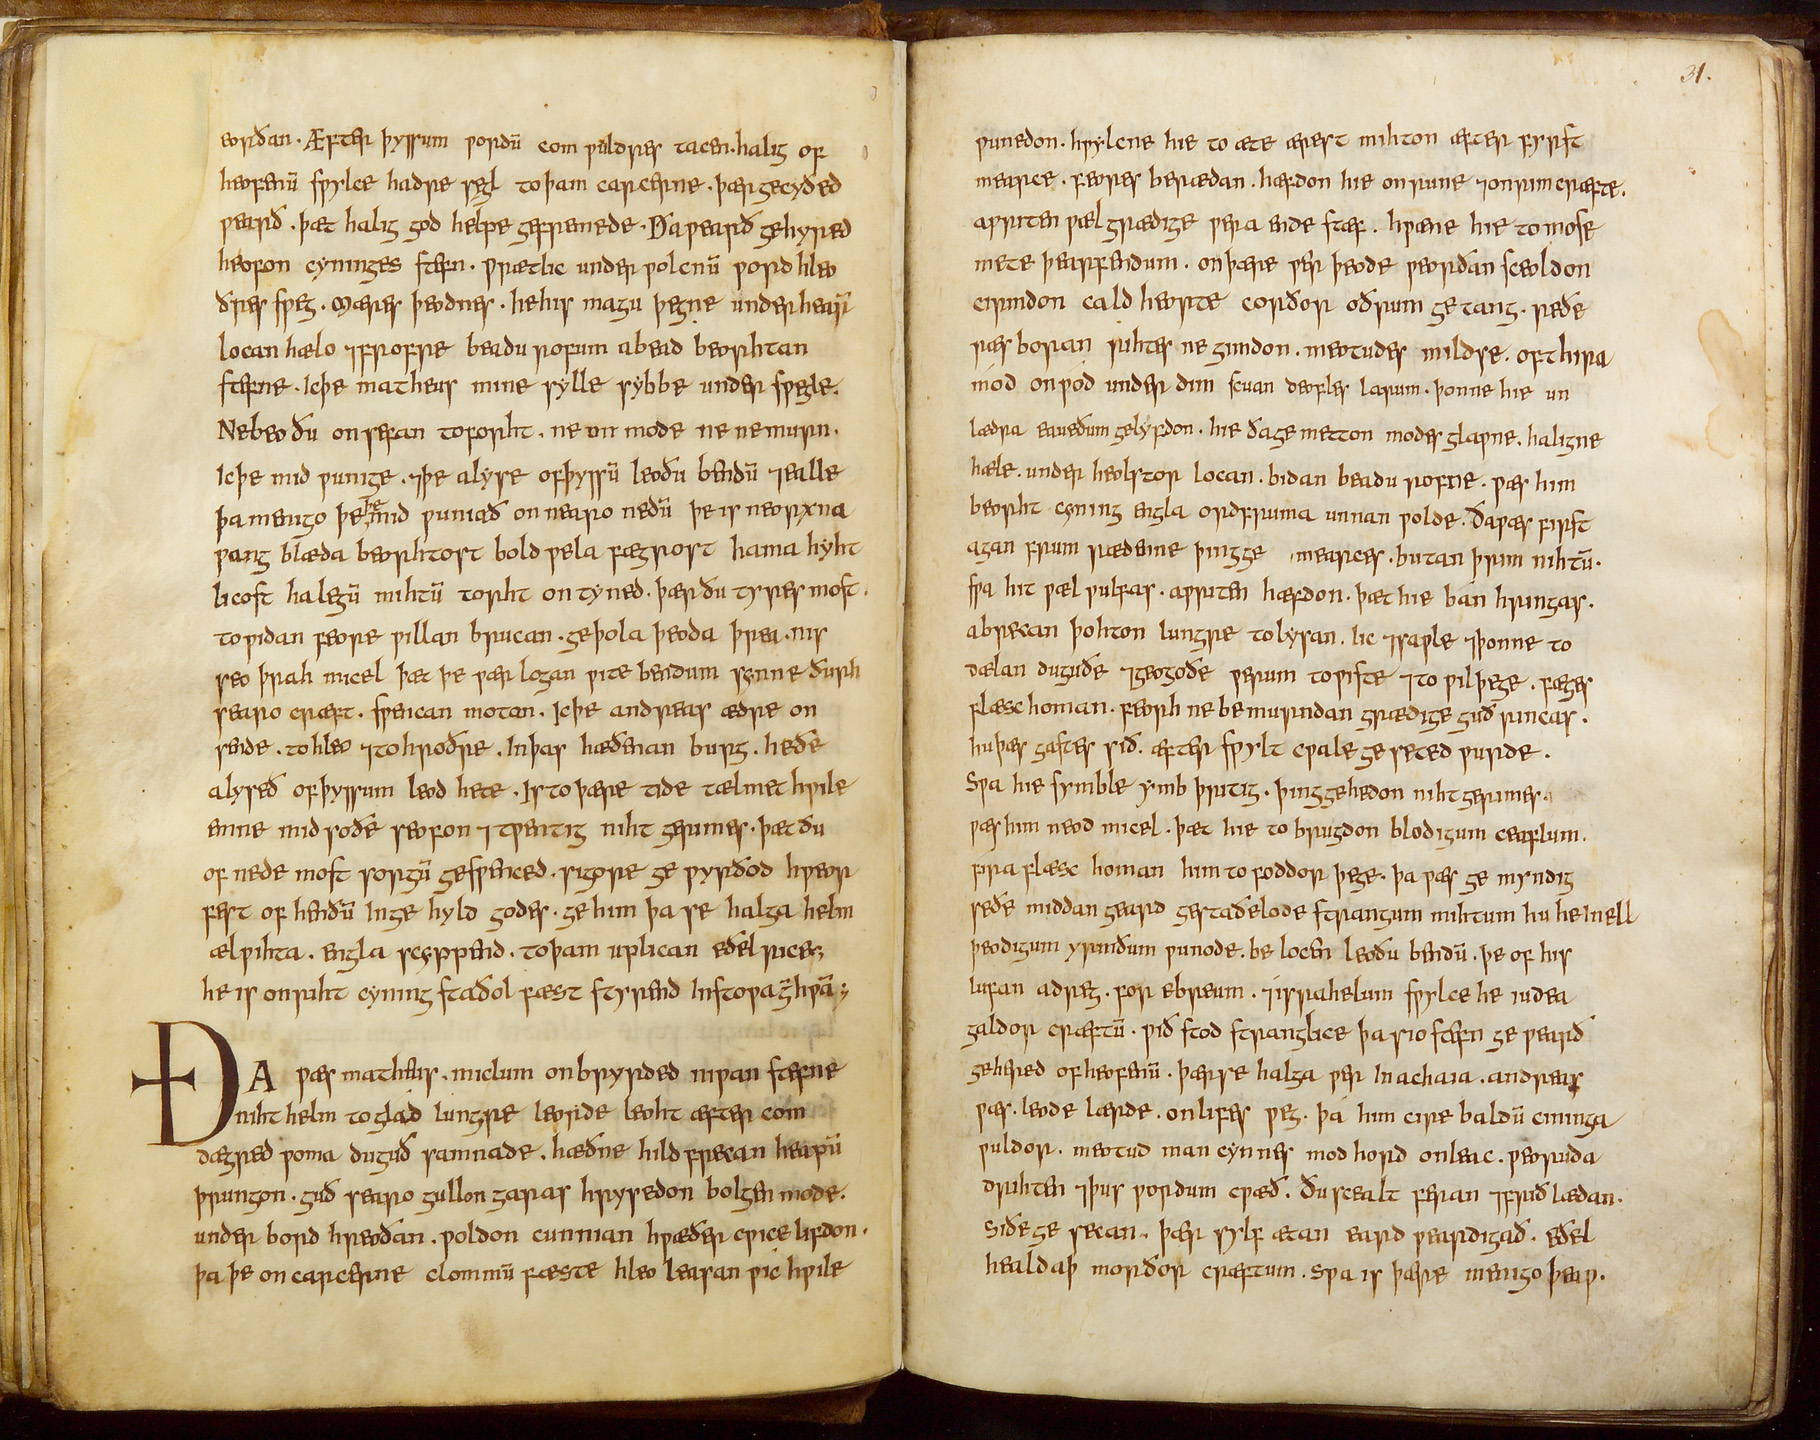 eorðan · Æfter þyssum ƿordū com ƿuldres tacen · halig of
heofenū sƿylce hadre segl to þam carcerne · þær gecyðed
ƿearð · þæt halig god helpe gefremede · Ða ƿearð gehyred
heofon cyninges stefn · ƿrætlic under ƿolcnū ƿordhleo
ðres sƿeg · mæres þeodnes · he his magu þegne under hearm
locan hælo ⁊ frofre beadu rofum abead beorhtan
stefne · Ic þe matheus mine sylle sybbe under sƿegle ·
Ne beo ðu on sefan to forht · ne on mode ne ne murn ·
Ic þe mid ƿunige · ⁊ þe alyse of þyssū leoðu bendū ⁊ ealle
þa menigo þe þe mid ƿuniað on nearo nedū þe is neorxna
ƿang blæda beorhtost bold ƿela fægrost hama hyht
licost halegū mihtū torht ontyned · þær ðu tyres most ·
to ƿidan feore ƿillan brucan · geþola þeoda þrea · nis
seo þrah micel þæt þe ƿær logan ƿite bendum synne ðurh
searo cræft · sƿencan motan · Ic þe andreas ædre on
sende · to hleo ⁊ to hroðre · In þas hæðenan burg · he ðe
alyseð of þyssum leod hete · Is to þære tide tælmet hƿile
emne mid soðe seofon ⁊ tƿentig niht gerimes · þæt ðu
of nede most sorgū gesƿenced · sigore geƿyrðod hƿeor
fest of hendū In gehyld godes · geƿ him þa se halga helm
ælƿihta · engla scyppend · to þam uplican eðel rices
he is onriht cyning staðol fæst styrend In stoƿa gehƿā :
ÐA ƿæs matheus · miclum onbryrded niƿan stefne
niht helm toglad lungre leorde leoht æfter com
dægred ƿoma duguð samnade · hæðne hild frecan heapū
þrungon · guð searo gullon garas hrysedon bolgen mode ·
under bord hreoðan · ƿoldon cunnian hƿæðer cƿice lifdon ·
þa þe on carcerne clommū fæste hleo leasan ƿic hƿile
31.
ƿunedon · hƿylcne hie to æte ærest mihton æfter fyrst
mearce · feores berædan · hæfdon hie on rune ⁊ on rim cræfte ·
aƿriten ƿælgrædige ƿera ende stæf · hƿænne hie to mose
mete þearfendum · on þære ƿer þeode ƿeorðan sceoldon
cirmdon cald heorte corðor oðrum getang · reðe
ræs boran rihtes ne gimdon · meotudes mildse · oft hira
mod onƿod under dim scuan deofles larum · þonne hie un
lædra eaueðum gelyfdon · hie ða gemetton modes glaƿne · haligne
hæle · under heolstor locan · bidan beadu rofne · þæs him
beorht cyning engla ordfruma unnan ƿolde · Ða ƿæs first
agan frum rædenne þinggemearces · butan þrim nihtū ·
sƿa hit ƿæl ƿulfas · aƿriten hæfdon · þæt hie ban hringas ·
abrecan þohton lungre tolysan · lic ⁊ saƿle ⁊ þonne to
dælan duguðe ⁊ geogoðe ƿerum to ƿiste ⁊ to ƿilþege · fæges
flæsc homan · feorh ne bemurndan grædige guð rincas ·
hu þæs gastes sið · æfter sƿylt cƿale geseted ƿurde ·
Sƿa hie symble ymb þritig · þing gehedon niht gerimes ·
ƿæs him neod micel · þæt hie tobrugdon blodigum ceaflum ·
fira flæsc homan him to foddor þege · þa ƿæs gemyndig
seðe middan geard gestaðelode strangum mihtum hu he In ell
þeodigum yrmðum ƿunode · belocen leoðu bendū · þe oft his
lufan adreg · for ebreum · ⁊ israhelum sƿylce he iudea
galdor cræftū · ƿið stod stranglice þa sio stefn geƿearð
gehered of heofenū · þær se halga ƿer In achaia · andreas
ƿæs · leode lærde · on lifes ƿeg · þa him cire baldū cininga
ƿuldor · meotud man cynnes mod hord onleac · ƿeoruda
drihten ⁊ þus ƿordum cƿæð · ðu scealt feran ⁊ frið lædan ·
siðe gesecan · þær sylf ætan eard ƿeardigað · eðel
healdaþ morðor cræftum · sƿa is þære menigo þeaƿ ·